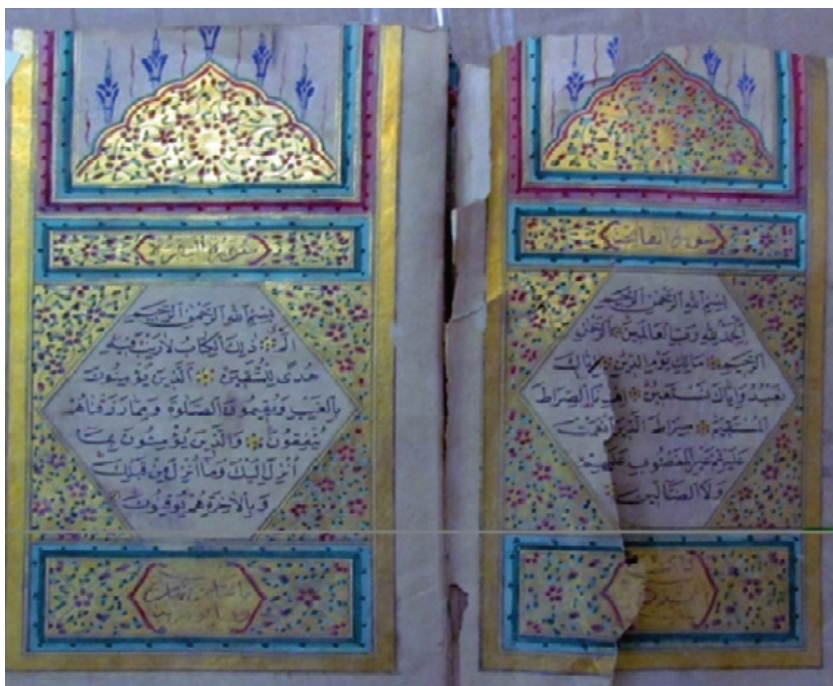 سورة الفاتحة
بسم الله الرحمن الرحيم
الحمد لله رب العالمين الرحمن
الرحيم مالك يوم الدين إياك
نعبد وإياك نستعين إهدنا الصراط
المستقيم صراط الذين أنعمت
عليهم غير المغضوب عليهم
ولا الضالين
سورة البقرة
بسم الله الرحمن الرحيم
الم ذلك الكتاب لا ريب فيه
هدى للمتقين الذين يؤمنون
بالغيب ويقيمون الصلوة ومما رزقناهم
ينفقون والذين يؤمنون بما
أنزل إليك وما أنزل من قبلك
وبالآخرة هم يوقنون